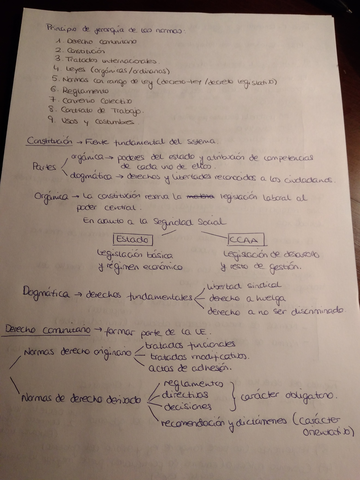 Principio de jerarquía de las normas:
1. Derecho comunitario
2. Constitución
3. Tratados internacionales.
4. Leyes (orgánicas/ordinarias)
5. Normas con rango de ley (decreto-ley / decreto legislativo)
6. Reglamento
7. Convenio Colectivo
8. Contrato de Trabajo.
9. Usos y costumbres
Constitución → Fuente fundamental del sistema.
Partes
orgánica → poderes del estado y atribución de competencias
de cada uno de ellos
dogmática → derechos y libertades reconocidos a los ciudadanos.
Orgánica → La constitución reserva la materia regulación laboral al
poder central
En asunto a la Seguridad Social
Estado CCAA
legislación básica legislación de desarrollo
y régimen económico y resto de gestión.
Dogmática → derechos fundamentales
libertad sindical
derecho a huelga
derecho a no ser discriminado
Derecho comunitario → formar parte de la UE.
Normas derecho originario
tratados funcionales
tratados modificativos.
actas de adhesión.
Normas de derecho derivado
reglamentos
directivas
decisiones
carácter obligatorio.
recomendación y dictámenes (carácter
orientativo)